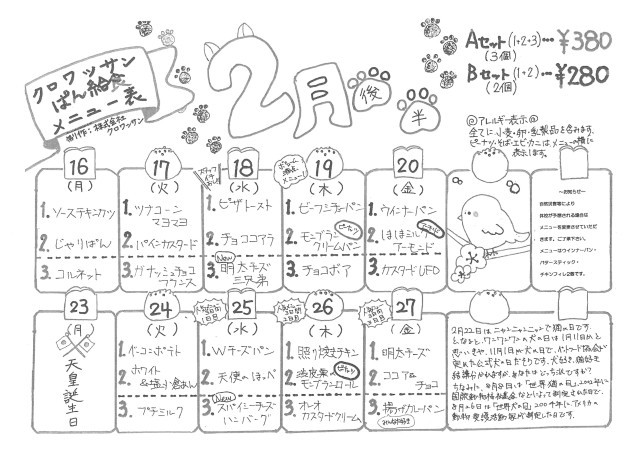 クロワッサン
ぱん給食
メニュー表
制作:株式会社
クロワッサン
2月
後半
Aセット(1+2+3)…¥380
(3個)
Bセット(1+2)…¥280
(2個)
◎アレルギー表示◎
全てに小麦・卵・乳製品を含みます。
ピーナツ・そば・エビ・カニは、メニューの横に
表示します。
16
(月)
1.ソースチキンカツ
2.じゃりぱん
3.コルネット
17
(火)
1.ツナコーン
マヨマヨ
2.パインカスタード
3.ガナッシュチョコ
18
(水)
1.ピザトースト
2.チョココアラ
New
3.明太チーズ
三兄弟
19
(木)
1.ビーフシチューパン
2.モンブラン
クリームパン
ピーナッツ
3.チョコボア
20
(金)
1.ウインナーパン
2.ほほミルン
アーモンド
アーモンド
3.カスタードUFO
~お知らせ~
自然災害等により
休校が予想される場合は
メニューを変更させていただ
きます。ご了承下さい。
メニューはウインナーパン・
バタースティック・
チキンフィレ2個です。
23
(月)
天皇誕生日
24
(火)
1.ベーコンポテト
2.ホワイト
&塩バター
3.プチミルク
25
(水)
1.Wチーズパン
2.天使のほっぺ
New
3.スパイシーチーズ
ハンバーグ
26
(木)
1.照り焼きチキン
ピーナッツ
モンブランロール
3.オレオ
カスタードクリーム
27
(金)
1.明太チーズ
2.ココア&
チョコ
3.揚げカレーパン
2月22日は、ニャンニャンニャンで猫の日です。
となると、ワンワンワンの犬の日は1月11日かと
思いきや、11月1日が犬の日で、ペットフード協会が
定めた公式犬の日だそうです。犬好き、猫好き
結構分かれますが、あなたはどっち派ですか?
ちなみに、8月8日は「世界猫の日」2002年に
国際動物福祉基金などによって制定された日で、
8月26日は「世界犬の日」2004年にアメリカの
動物愛護活動家が制定した日です。